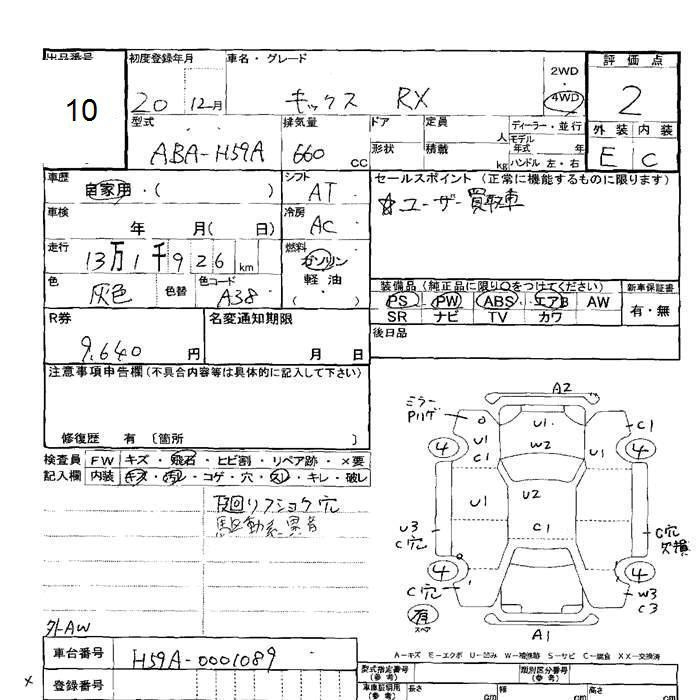 出品番号 初度登録年月 車名・グレード 評価点
10 20 12月 キックス RX 2WD 4WD 2
型式 排気量 ドア 定員 人 ディーラー・並行 外装 内装
ABA-H59A 660 CC 形状 積載 kg モデル年式 年 ハンドル 左・右 E C
車歴 シフト セールスポイント(正常に機能するものに限ります)
自家用・( ) AT ☆ユーザー買取車
車検 年 月( 日) 冷房 AC
走行 燃料
13万1千926km ガソリン
色 色替 色コード 軽油
灰色 A38 ( )
装備品(純正品に限り○をつけてください) 新車保証書
PS PW ABS エアB AW 有・無
SR ナビ TV カワ
R券 名変通知期限 後日品
9,640円 月 日
注意事項申告欄(不具合内容等は具体的に記入して下さい)
修復歴 有 〔箇所 〕
検査員 FW キズ・飛石・ヒビ割・リペア跡・×要
記入欄 内装 キズ・汚レ・コゲ・穴・スレ・キレ・破レ
下回リフショク穴
駆動系異音
外AW
A2
ミラー
Pリゲ
0 U1 C1
U1 W2 U1
4 C1 4
U1 U2
U3 C1 C穴
C穴 欠損
4 4
C穴 W3
C3
有
スペア
A1
A-キズ E-エクボ U-凹み W-補修跡 S-サビ C-腐食 XX-交換済
車台番号 H59A-0001089
登録番号
型式指定番号(参考) 類別区分番号(参考)
車庫証明用(参考) 長さ cm 幅 cm 高さ cm
×